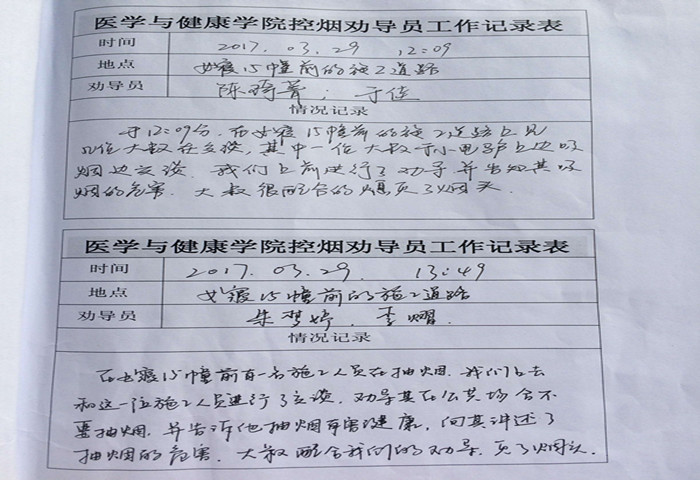 医学与健康学院控烟劝导员工作记录表
时间 2017.03.29 12:09
地点 女寝15幢前的施工道路
劝导员 陈琦菁; 于佳
情况记录
于12:09分,在女寝15幢前的施工道路上见
几位大叔在交谈,其中一位大叔于小电驴上边吸
烟边交谈.我们上前进行了劝导并告知其吸
烟的危害.大叔很配合的熄灭了烟头.
医学与健康学院控烟劝导员工作记录表
时间 2017.03.29. 13:49
地点 女寝15幢前的施工道路
劝导员 朱梦婷. 李熠.
情况记录
在女寝15幢前有一名施工人员在抽烟.我们上去
和这一位施工人员进行了交谈,劝导其在公共场合不
要抽烟.并告诉他抽烟有害健康,向其讲述了
抽烟的危害.大叔配合我们的劝导.灭了烟头.